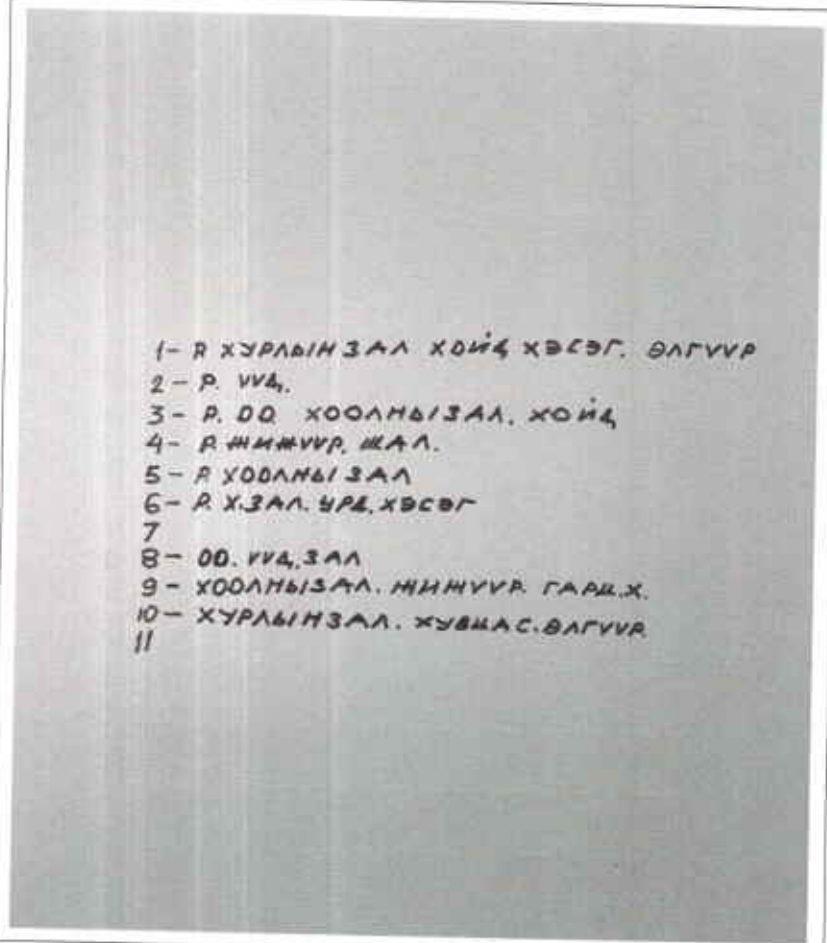 1- Р ХУРЛЫН ЗАЛ ХОЙД ХЭСЭГ. ӨЛГҮҮР
2- Р. ҮҮД.
3- Р. ОО. ХООЛНЫ ЗАЛ. ХОЙД
4- Р. ЖИЖҮҮР. ШАЛ.
5- Р ХООЛНЫ ЗАЛ
6- Р. Х.ЗАЛ. УРД. ХЭСЭГ
7
8- ОО. ҮҮД. ЗАЛ
9- ХООЛНЫ ЗАЛ. ЖИЖҮҮР. ГАРЦ. Х.
10- ХУРЛЫН ЗАЛ. ХУВЦАС. ӨЛГҮҮР.
11